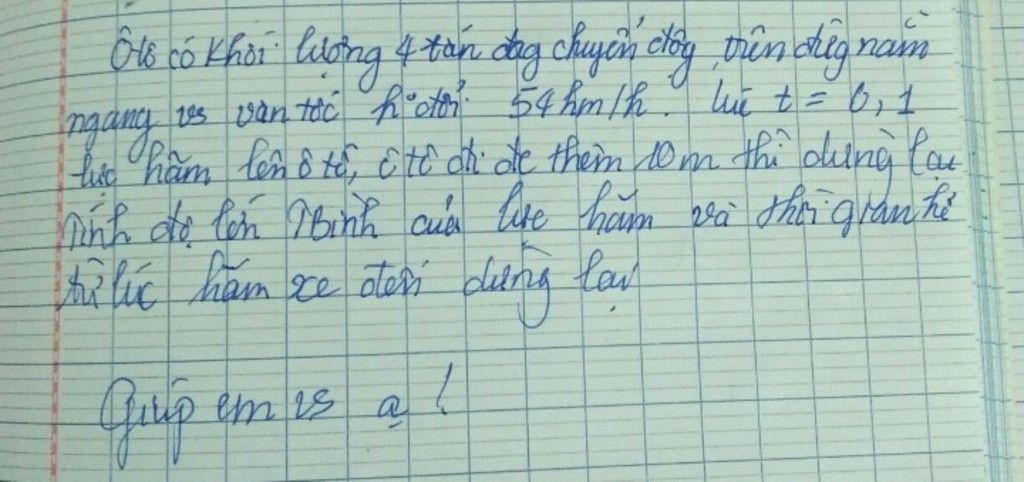 Ôtô có khối lượng 4 tấn đag chuyển độg trên đườg nằm
ngang vs vận tốc 54km/h. lúc t = 0, 1
lực hãm lên ô tô, ô tô đi đc thêm 10m thì dừng lại
Tính độ lớn Tbình của lực hãm và thời gian kể
từ lúc hãm xe đến dừng lại
Giúp em vs ạ !